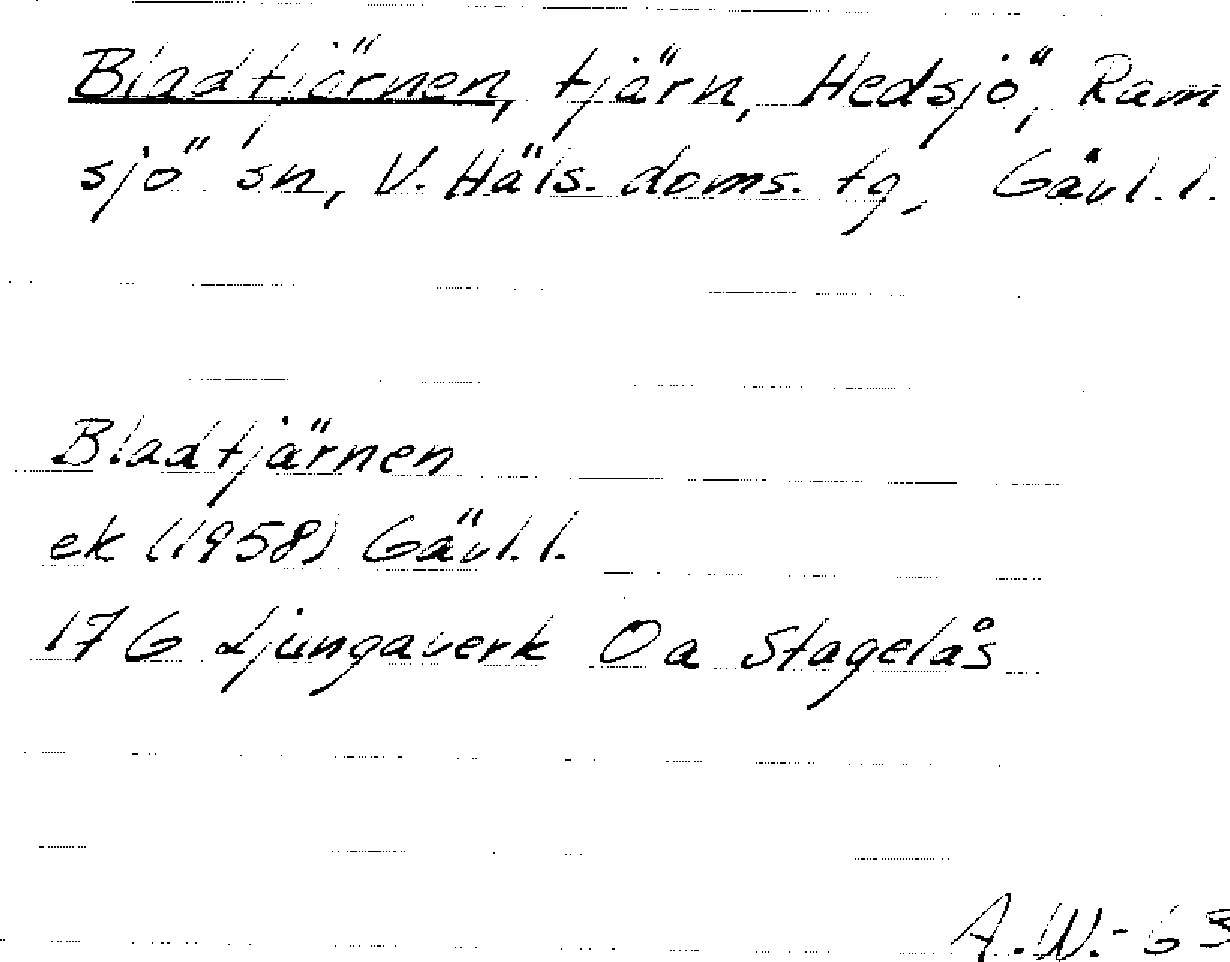 Bladtjärnen, tjärn, Hedsjö, Ram
sjö sn, V. Häls. doms. tg, Gävl. l.
Bladtjärnen
ek (1958) Gävl. l.
17 G Ljungaverk Oa Stagelås
A.W.-63